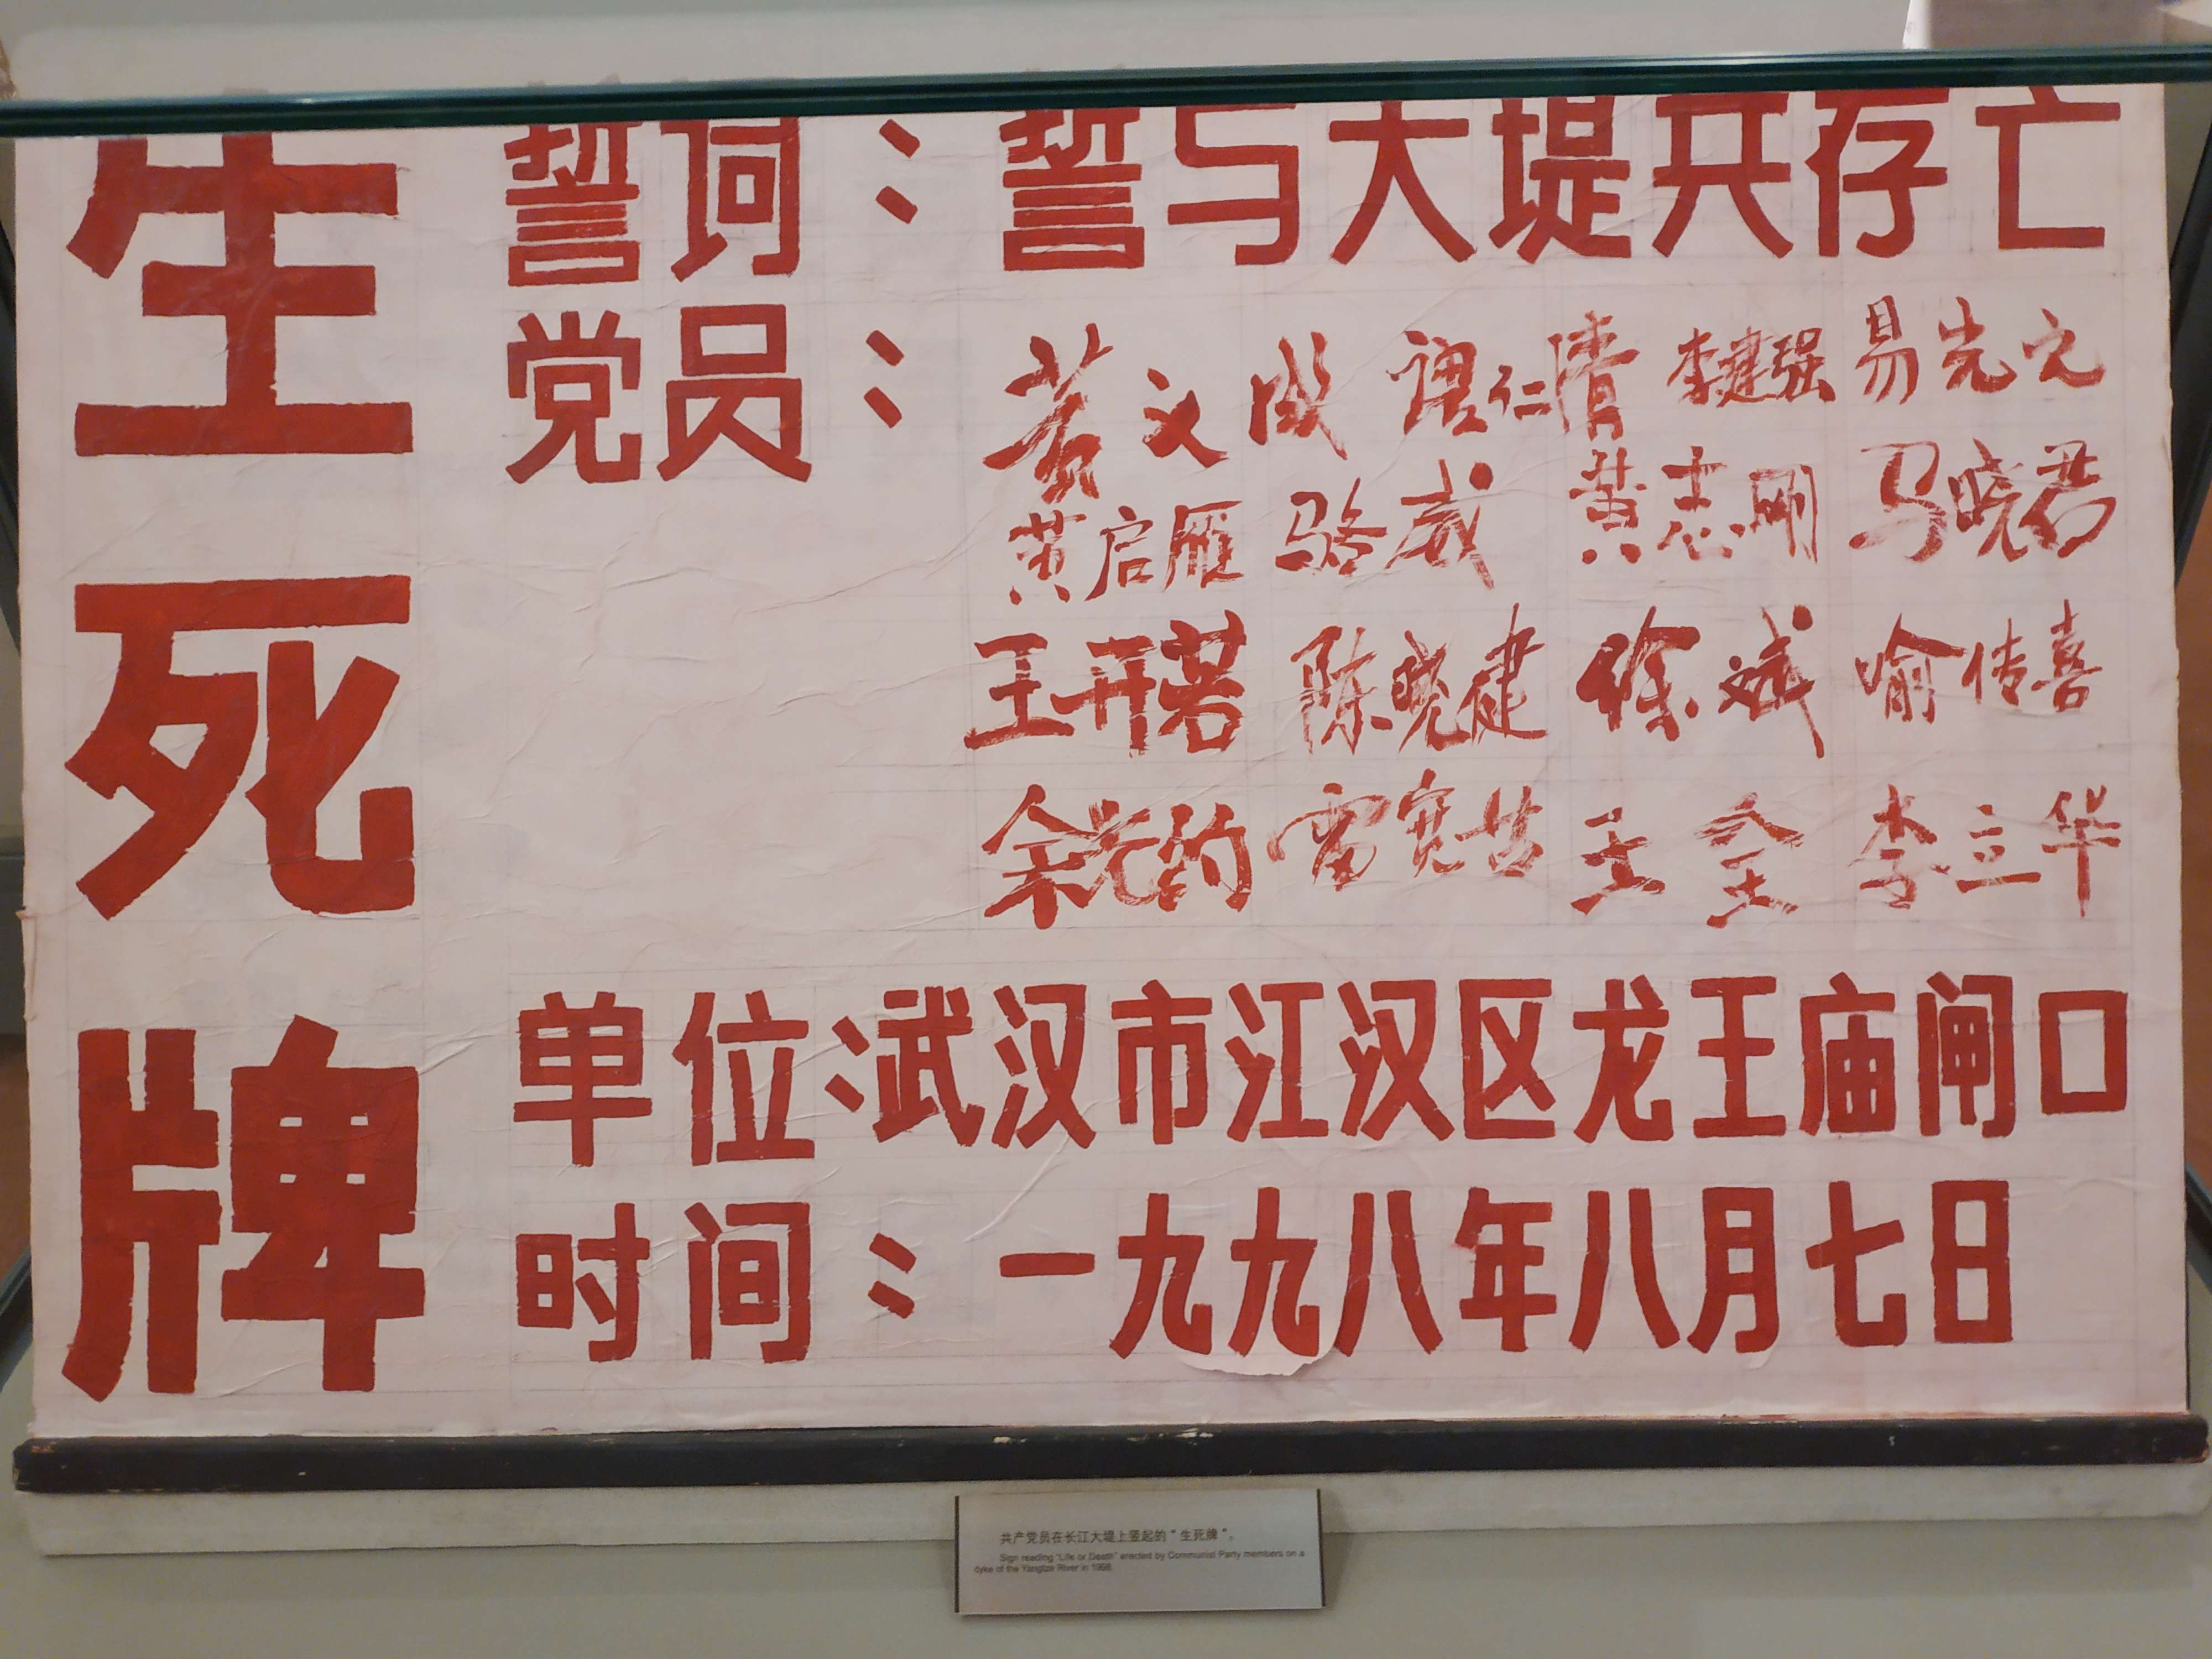 生死牌
誓词：誓与大堤共存亡
党员：
文成 谭仁清 李建强 易先元
黄启雁 骆威 黄志刚 马晓君
王开若 陈晓健 徐斌 喻传喜
余光钧 雷宽 王全 李立华
单位：武汉市江汉区龙王庙闸口
时间：一九九八年八月七日
共产党员在长江大堤上竖起的“生死牌”。
Sign reading "Life or Death" erected by Communist Party members on a
dyke of the Yangtze River in 1998.